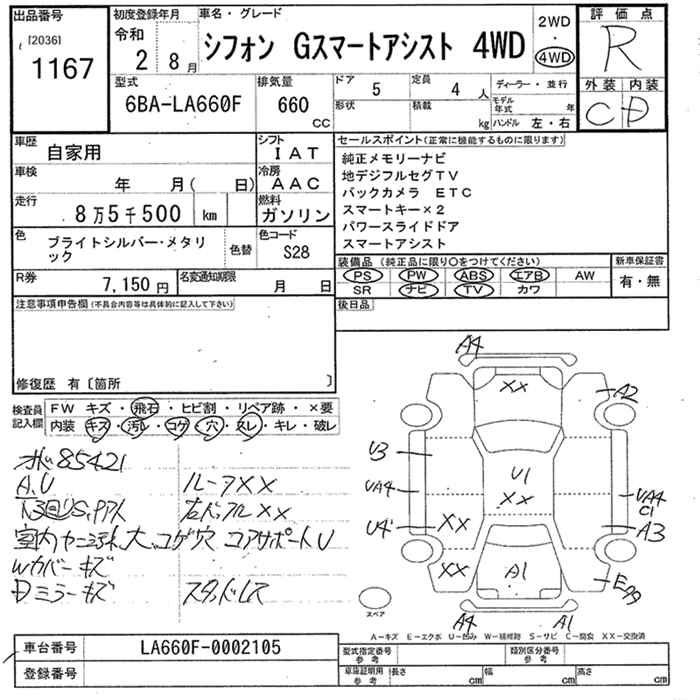 出品番号
[2036]
1167
初度登録年月
令和
2 8月
車名・グレード
シフォン Gスマートアシスト 4WD
2WD
・
4WD
評価点
R
外装 内装
C D
型式
6BA-LA660F
排気量
660
CC
ドア
5
定員
4 人
形状
積載
kg
ディーラー・並行
モデル年式 年
ハンドル 左・右
車歴
自家用
シフト
IAT
車検
年 月( 日)
冷房
AAC
走行
8万5千500 km
燃料
ガソリン
色
ブライトシルバー・メタリック
色替
色コード
S28
R券
7,150円
名変通知期限
月 日
セールスポイント(正常に機能するものに限ります)
純正メモリーナビ
地デジフルセグTV
バックカメラ ETC
スマートキー×2
パワースライドドア
スマートアシスト
装備品(純正品に限り○をつけてください)
PS PW ABS エアB AW
SR ナビ TV カワ
新車保証書
有・無
後日品
注意事項申告欄(不具合内容等は具体的に記入して下さい)
修復歴 有〔箇所 〕
検査員記入欄
FW キズ・飛石・ヒビ割・リペア跡・×要
内装 キズ・汚レ・コゲ・穴・スレ・キレ・破レ
85421
A,U
ルーフXX
室内ヤニ汚れ大、コゲ穴 コアサポートU
Wカバーキズ
Dミラーキズ
スタッドレス
A4
XX
A2
U3
U1
UA4
XX
UA4
C1
U4
XX
A3
XX
A1
E99
A4
A1
スペア
A-キズ E-エクボ U-凹み W-補修跡 S-サビ C-腐食 XX-交換済
車台番号
LA660F-0002105
登録番号
型式指定番号
参考
類別区分番号
参考
車庫証明用
参考
長さ cm
幅 cm
高さ cm